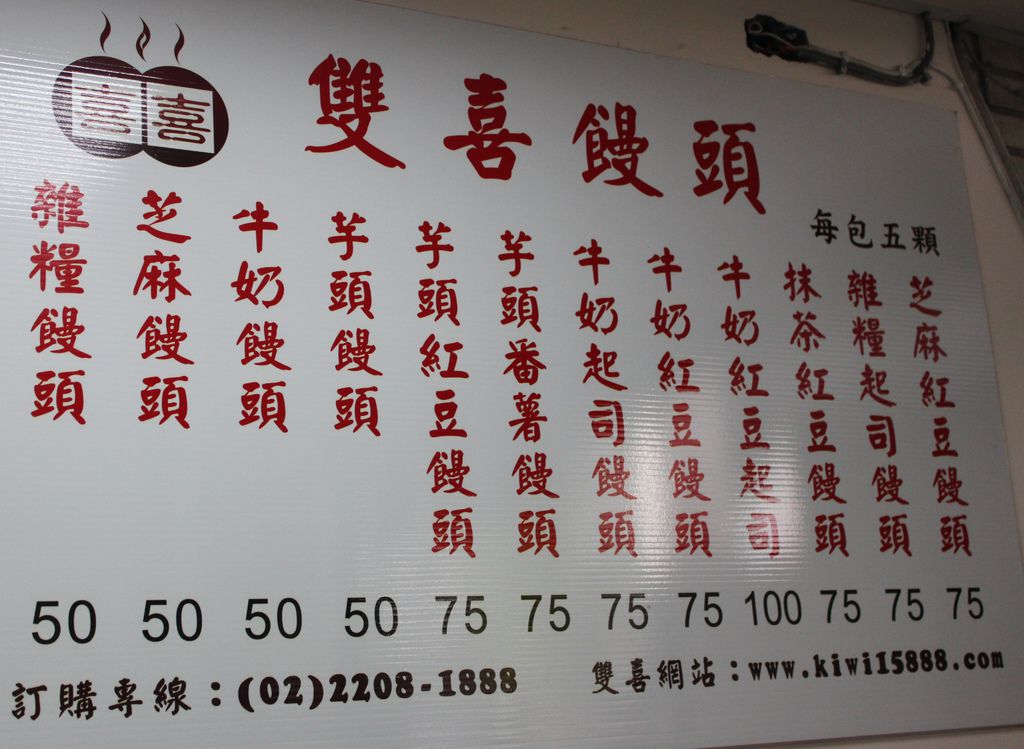 喜喜
雙喜饅頭
每包五顆
雜糧饅頭
芝麻饅頭
牛奶饅頭
芋頭饅頭
芋頭紅豆饅頭
芋頭番薯饅頭
牛奶起司饅頭
牛奶紅豆饅頭
牛奶紅豆起司
抹茶紅豆饅頭
雜糧起司饅頭
芝麻紅豆饅頭
50 50 50 50 75 75 75 75 100 75 75 75
訂購專線：(02)2208-1888
雙喜網站：www.kiwi15888.com